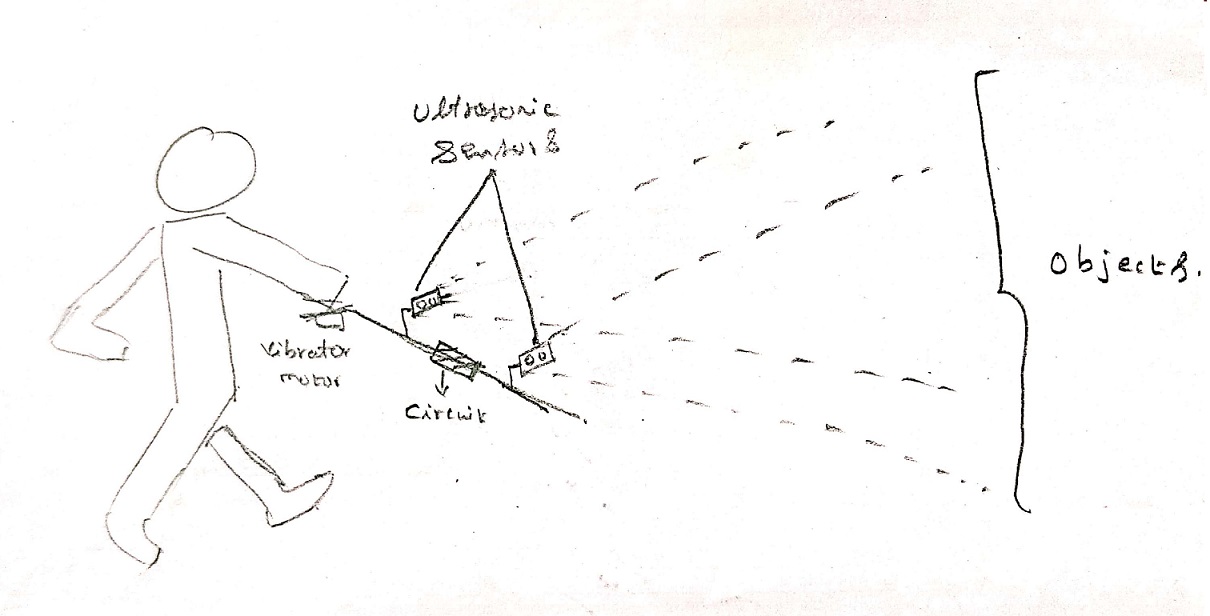 Ultrasonic
Sensors
Objects.
Vibrator
motor
Circuit